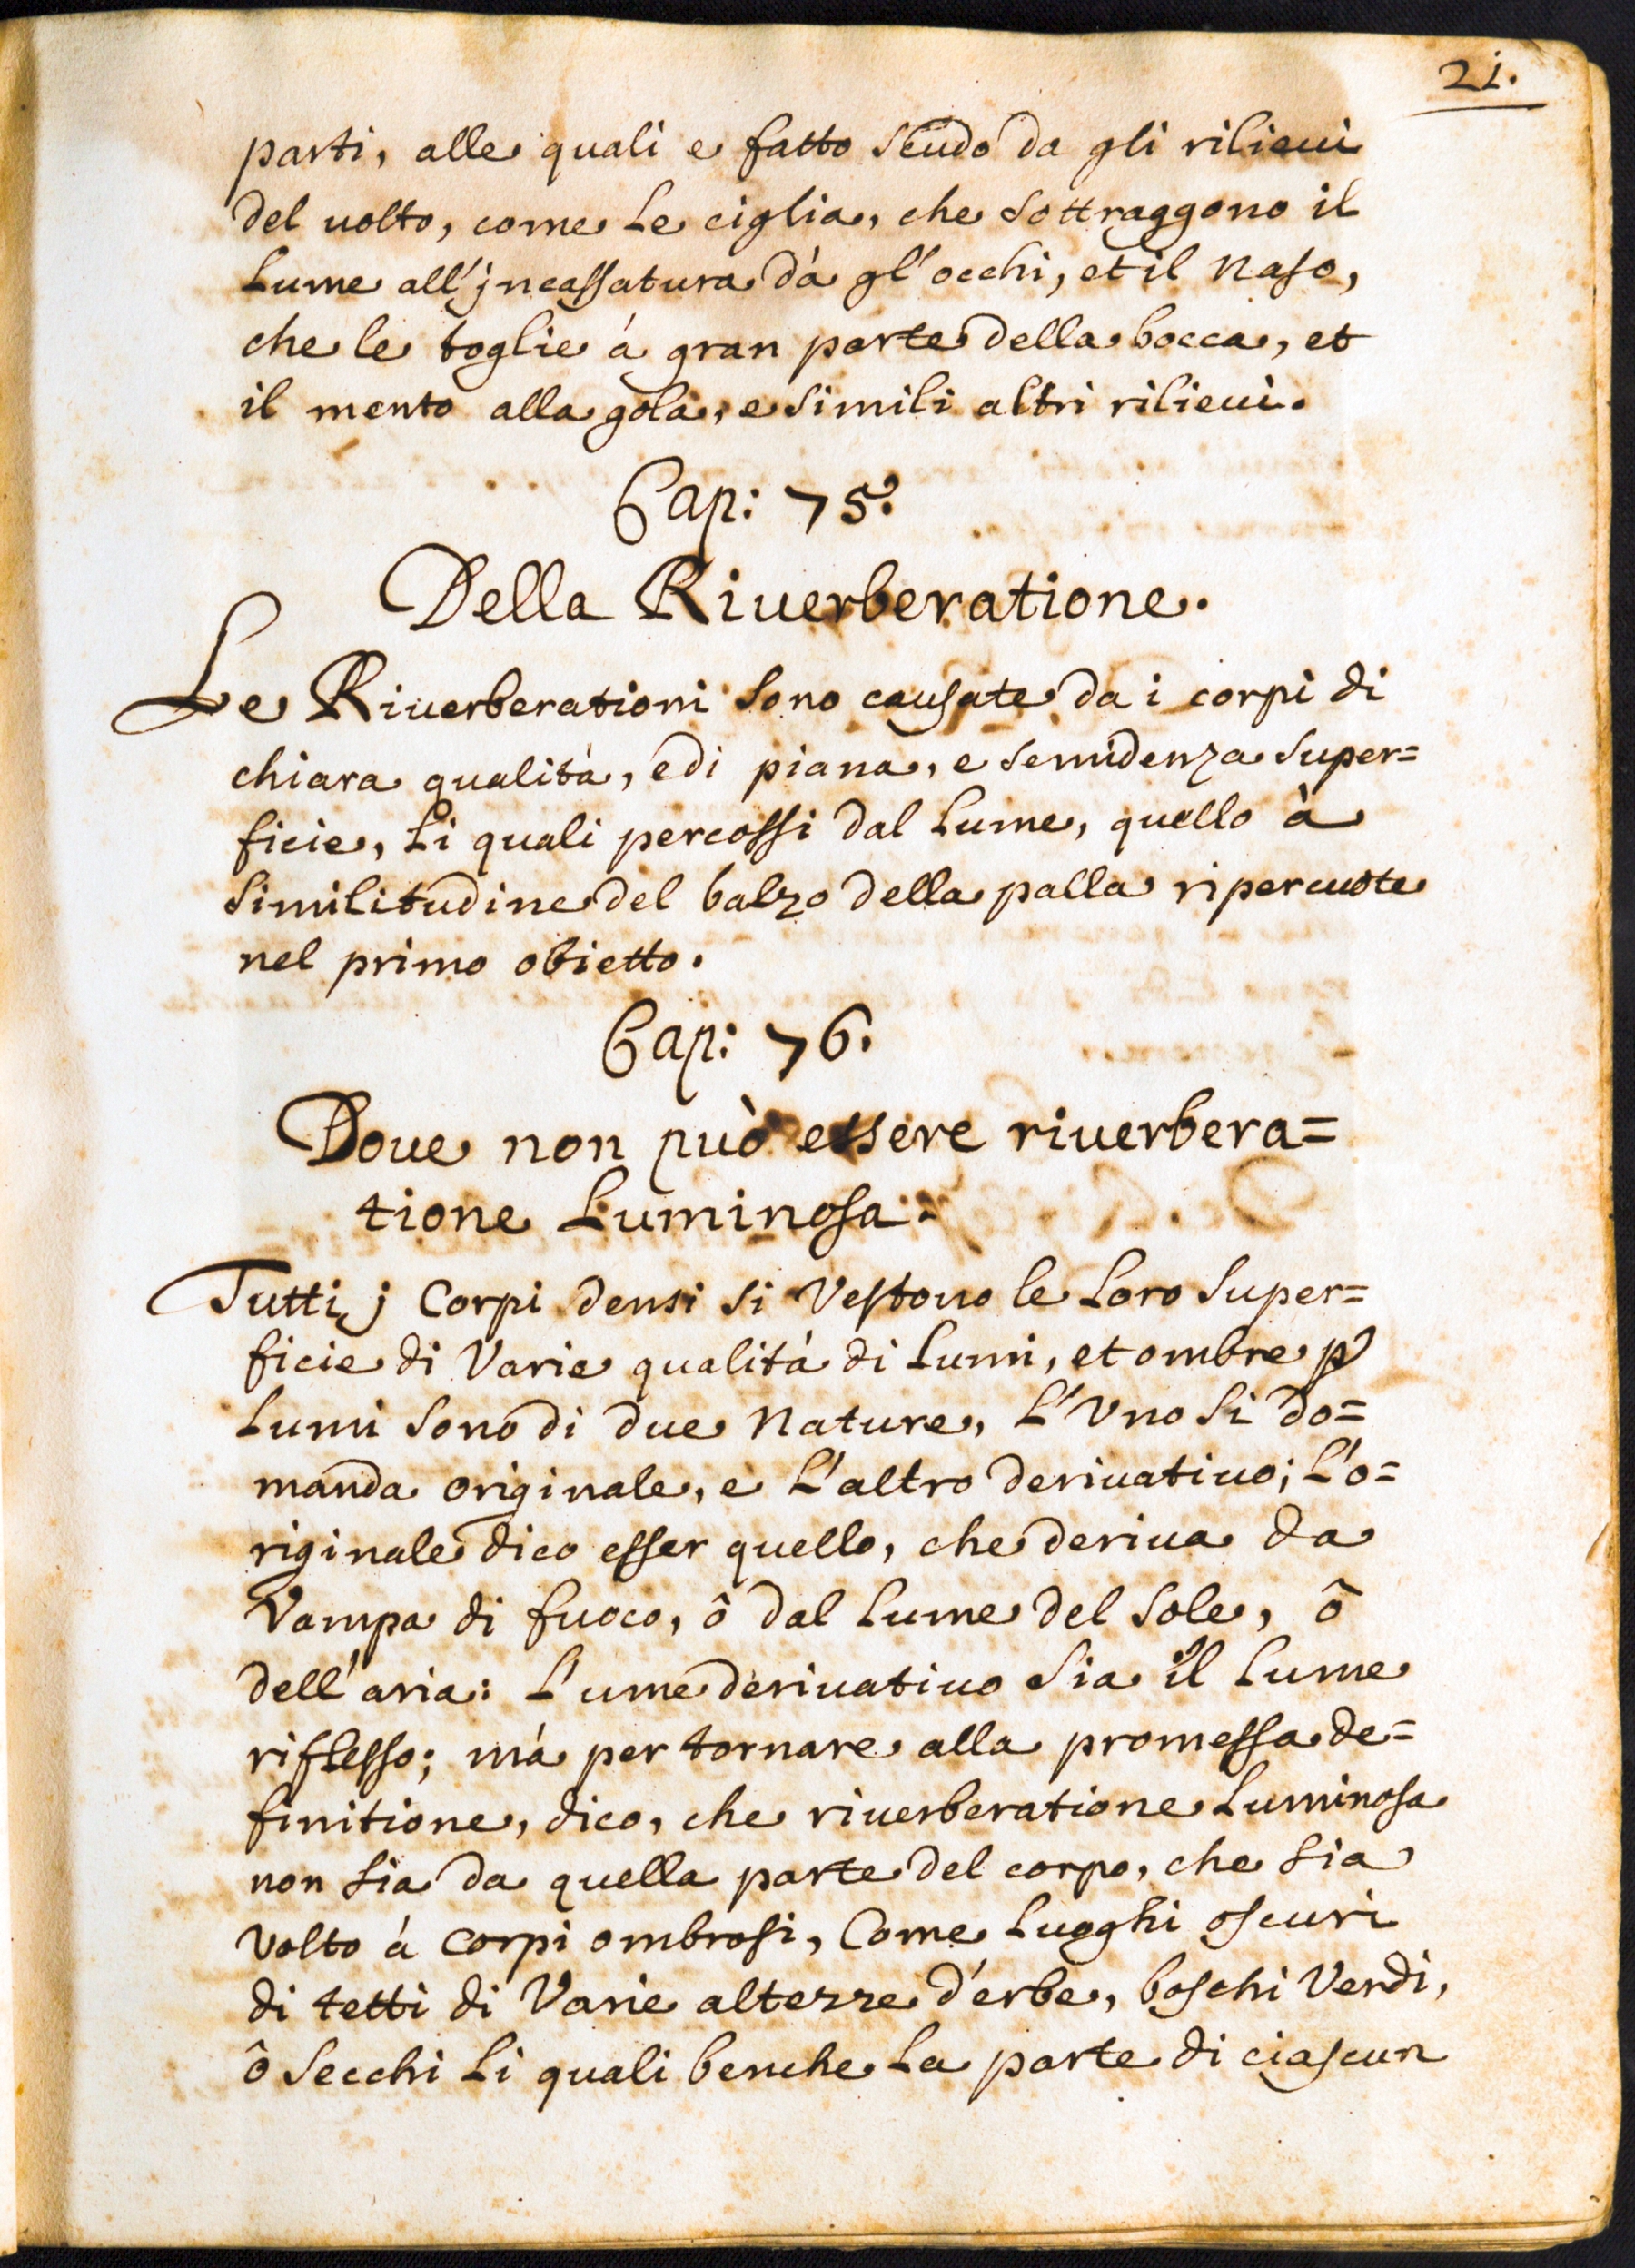 21.
parti, alle quali e fatto scudo da gli rilieui
del uolto, come le ciglia, che sottraggono il
lume all'jncassatura dà gl'occhi, et il naso,
che le toglie á gran parte della bocca, et
il mento alla gola, e simili altri rilieui.
Cap: 75.
Della Riuerberatione.
Le Riuerberationi sono causate da i corpi di
chiara qualità, e di piana, e semidenza super=
ficie, li quali percossi dal lume, quello à
similitudine del balzo della palla ripercuote
nel primo obietto.
Cap: 76.
Doue non può essere riuerbera=
tione luminosa.
Tutti j corpi densi si Vestono le loro super=
ficie di Varie qualità di lumi, et ombre p
lumi sono di due nature, l'Vno si do=
manda originale, e l'altro deriuatiuo; l'o=
riginale dico esser quello, che deriua da
Vampa di fuoco, ô dal lume del sole, ô
dell'aria: l'ume deriuatiuo sia il lume
riflesso; má per tornare alla promessa de=
finitione, dico, che riuerberatione luminosa
non sia da quella parte del corpo, che sia
Volto á corpi ombrosi, Come luoghi oscuri
di tetti di Varie altezze d'erbe, boschi Verdi,
ô secchi li quali benche la parte di ciascun